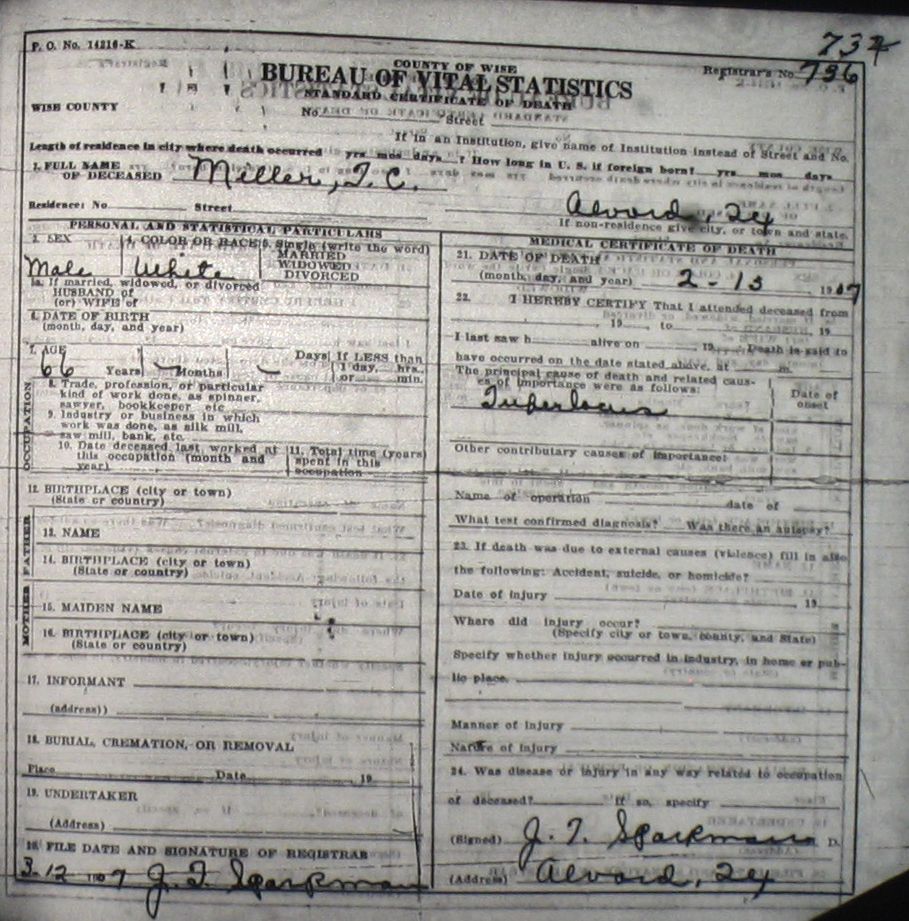 P. O. No. 14216-K
734
COUNTY OF WISE
Registrar's No. 736
BUREAU OF VITAL STATISTICS
STANDARD CERTIFICATE OF DEATH
WISE COUNTY
No. Street
If in an Institution, give name of Institution instead of Street and No.
Length of residence in city where death occurred yrs mos days ? How long in U. S. if foreign born? yrs mos days
1. FULL NAME OF DECEASED Miller, T. C.
Residence: No. Street Alvord, Tex
If non-residence give city, or town and state.
PERSONAL AND STATISTICAL PARTICULARS
3. SEX
Male
4. COLOR OR RACE
White
5. Single (write the word)
MARRIED
WIDOWED
DIVORCED
5a. If married, widowed, or divorced
HUSBAND of
(or) WIFE of
6. DATE OF BIRTH
(month, day, and year)
7. AGE
66 Years – Months – Days If LESS than
1 day, hrs.
or min.
OCCUPATION
8. Trade, profession, or particular
kind of work done, as spinner,
sawyer, bookkeeper etc.
9. Industry or business in which
work was done, as silk mill,
saw mill, bank, etc.
10. Date deceased last worked at
this occupation (month and
year)
11. Total time (years)
spent in this
occupation
12. BIRTHPLACE (city or town)
(State or country)
FATHER
13. NAME
14. BIRTHPLACE (city or town)
(State or country)
MOTHER
15. MAIDEN NAME
16. BIRTHPLACE (city or town)
(State or country)
17. INFORMANT
(address))
18. BURIAL, CREMATION, OR REMOVAL
Place Date , 19
19. UNDERTAKER
(Address)
20. FILE DATE AND SIGNATURE OF REGISTRAR
3-12 1907 J. T. Sparkman
MEDICAL CERTIFICATE OF DEATH
21. DATE OF DEATH
(month, day, and year) 2-13 1907
22. I HEREBY CERTIFY That I attended deceased from
, 19 , to , 19
I last saw h alive on , 19 Death is said to
have occurred on the date stated above, at m.
The principal cause of death and related causes
of importance were as follows:
Date of
onset
Tuberlocus
Other contributary causes of importance:
Name of operation date of
What test confirmed diagnosis? Was there an autopsy?
23. If death was due to external causes (violence) fill in also
the following: Accident, suicide, or homicide?
Date of injury , 19
Where did injury occur?
(Specify city or town, county, and State)
Specify whether injury occurred in industry, in home or pub-
lic place.
Manner of injury
Nature of injury
24. Was disease or injury in any way related to occupation
of deceased? If so, specify
(Signed) J. T. Sparkman D.
(Address) Alvord, Tex